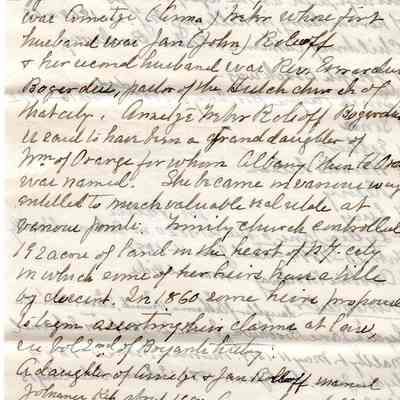 was Annetje (Anna) Webr whose first
husband was Jan (John) Roleoff
& her second husband was Rev. Everardus
Bogardus, pastor of the Dutch church of
that city. Annetje Webr Roleoff Bogardus
is said to have been a granddaughter of
Wm of Orange for whom Albany
was named. She became in various ways
entitled to much valuable real estate at
various points. Trinity church controlled
192 acres of land in the heart of N.Y. city
in which some of her heirs have a title
by descent. In 1860 some heirs proposed
to begin asserting their claims at law,
see Vol 2nd of
A daughter of Annetje & Jan Roleoff married
Johannes about